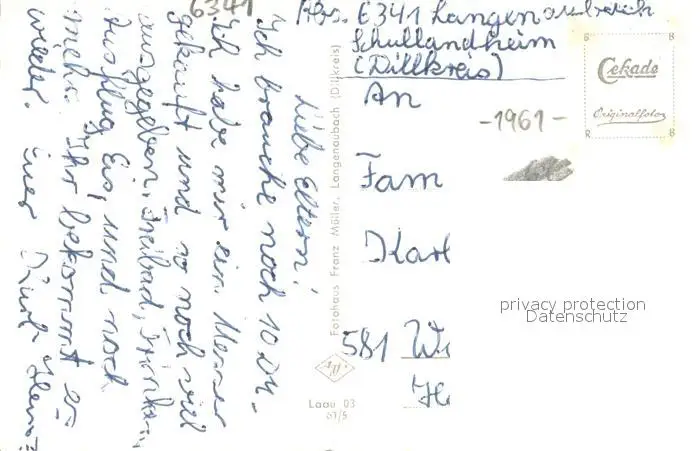 Liebe Eltern!
Ich brauche noch 10 DM.
Ich habe mir ein Messer
gekauft und so noch viel
ausgegeben, Freibad, Trinken,
Ausflug, Eis, und noch
mehr. Ihr bekommt es
wieder. Euer
6341
Fotohaus Franz Müller, Langenaubach (Dillkreis)
Laau 03
61/5
Abs. 6341 Langenaubach
Schullandheim
(Dillkreis)
An
-1961-
Fam
Karl
581 Wi
He
B B
Cekade
Originalfoto
R R
privacy protection
Datenschutz